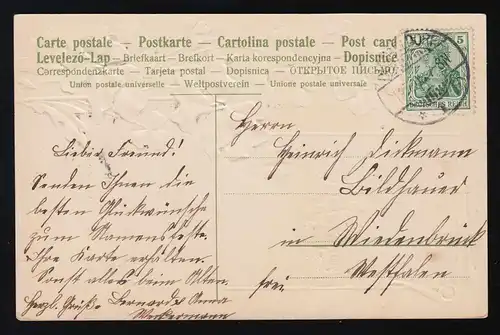 Carte postale - Postkarte - Cartolina postale - Post card
Levelező-Lap - Briefkaart - Brefkort - Karta korespondencyjna - Dopisnice
Correspondenzkarte - Tarjeta postal - Dopisnica - ОТКРЫТОЕ ПИСЬМО
Union postale universelle - Weltpostverein - Unione postale universale
5
DEUTSCHES REICH
Liebér Freund!
Senden Ihnen die
besten Glückwünsche
zum Namensfeste.
Ihre Karte erhalten.
Sonst alles beim Alten.
Herzl. Grüße Bernard u. Anna
Weckermann
Herrn
Heinrich Dickmann
Bildhauer
in Wiedenbrück
frei. Westfalen